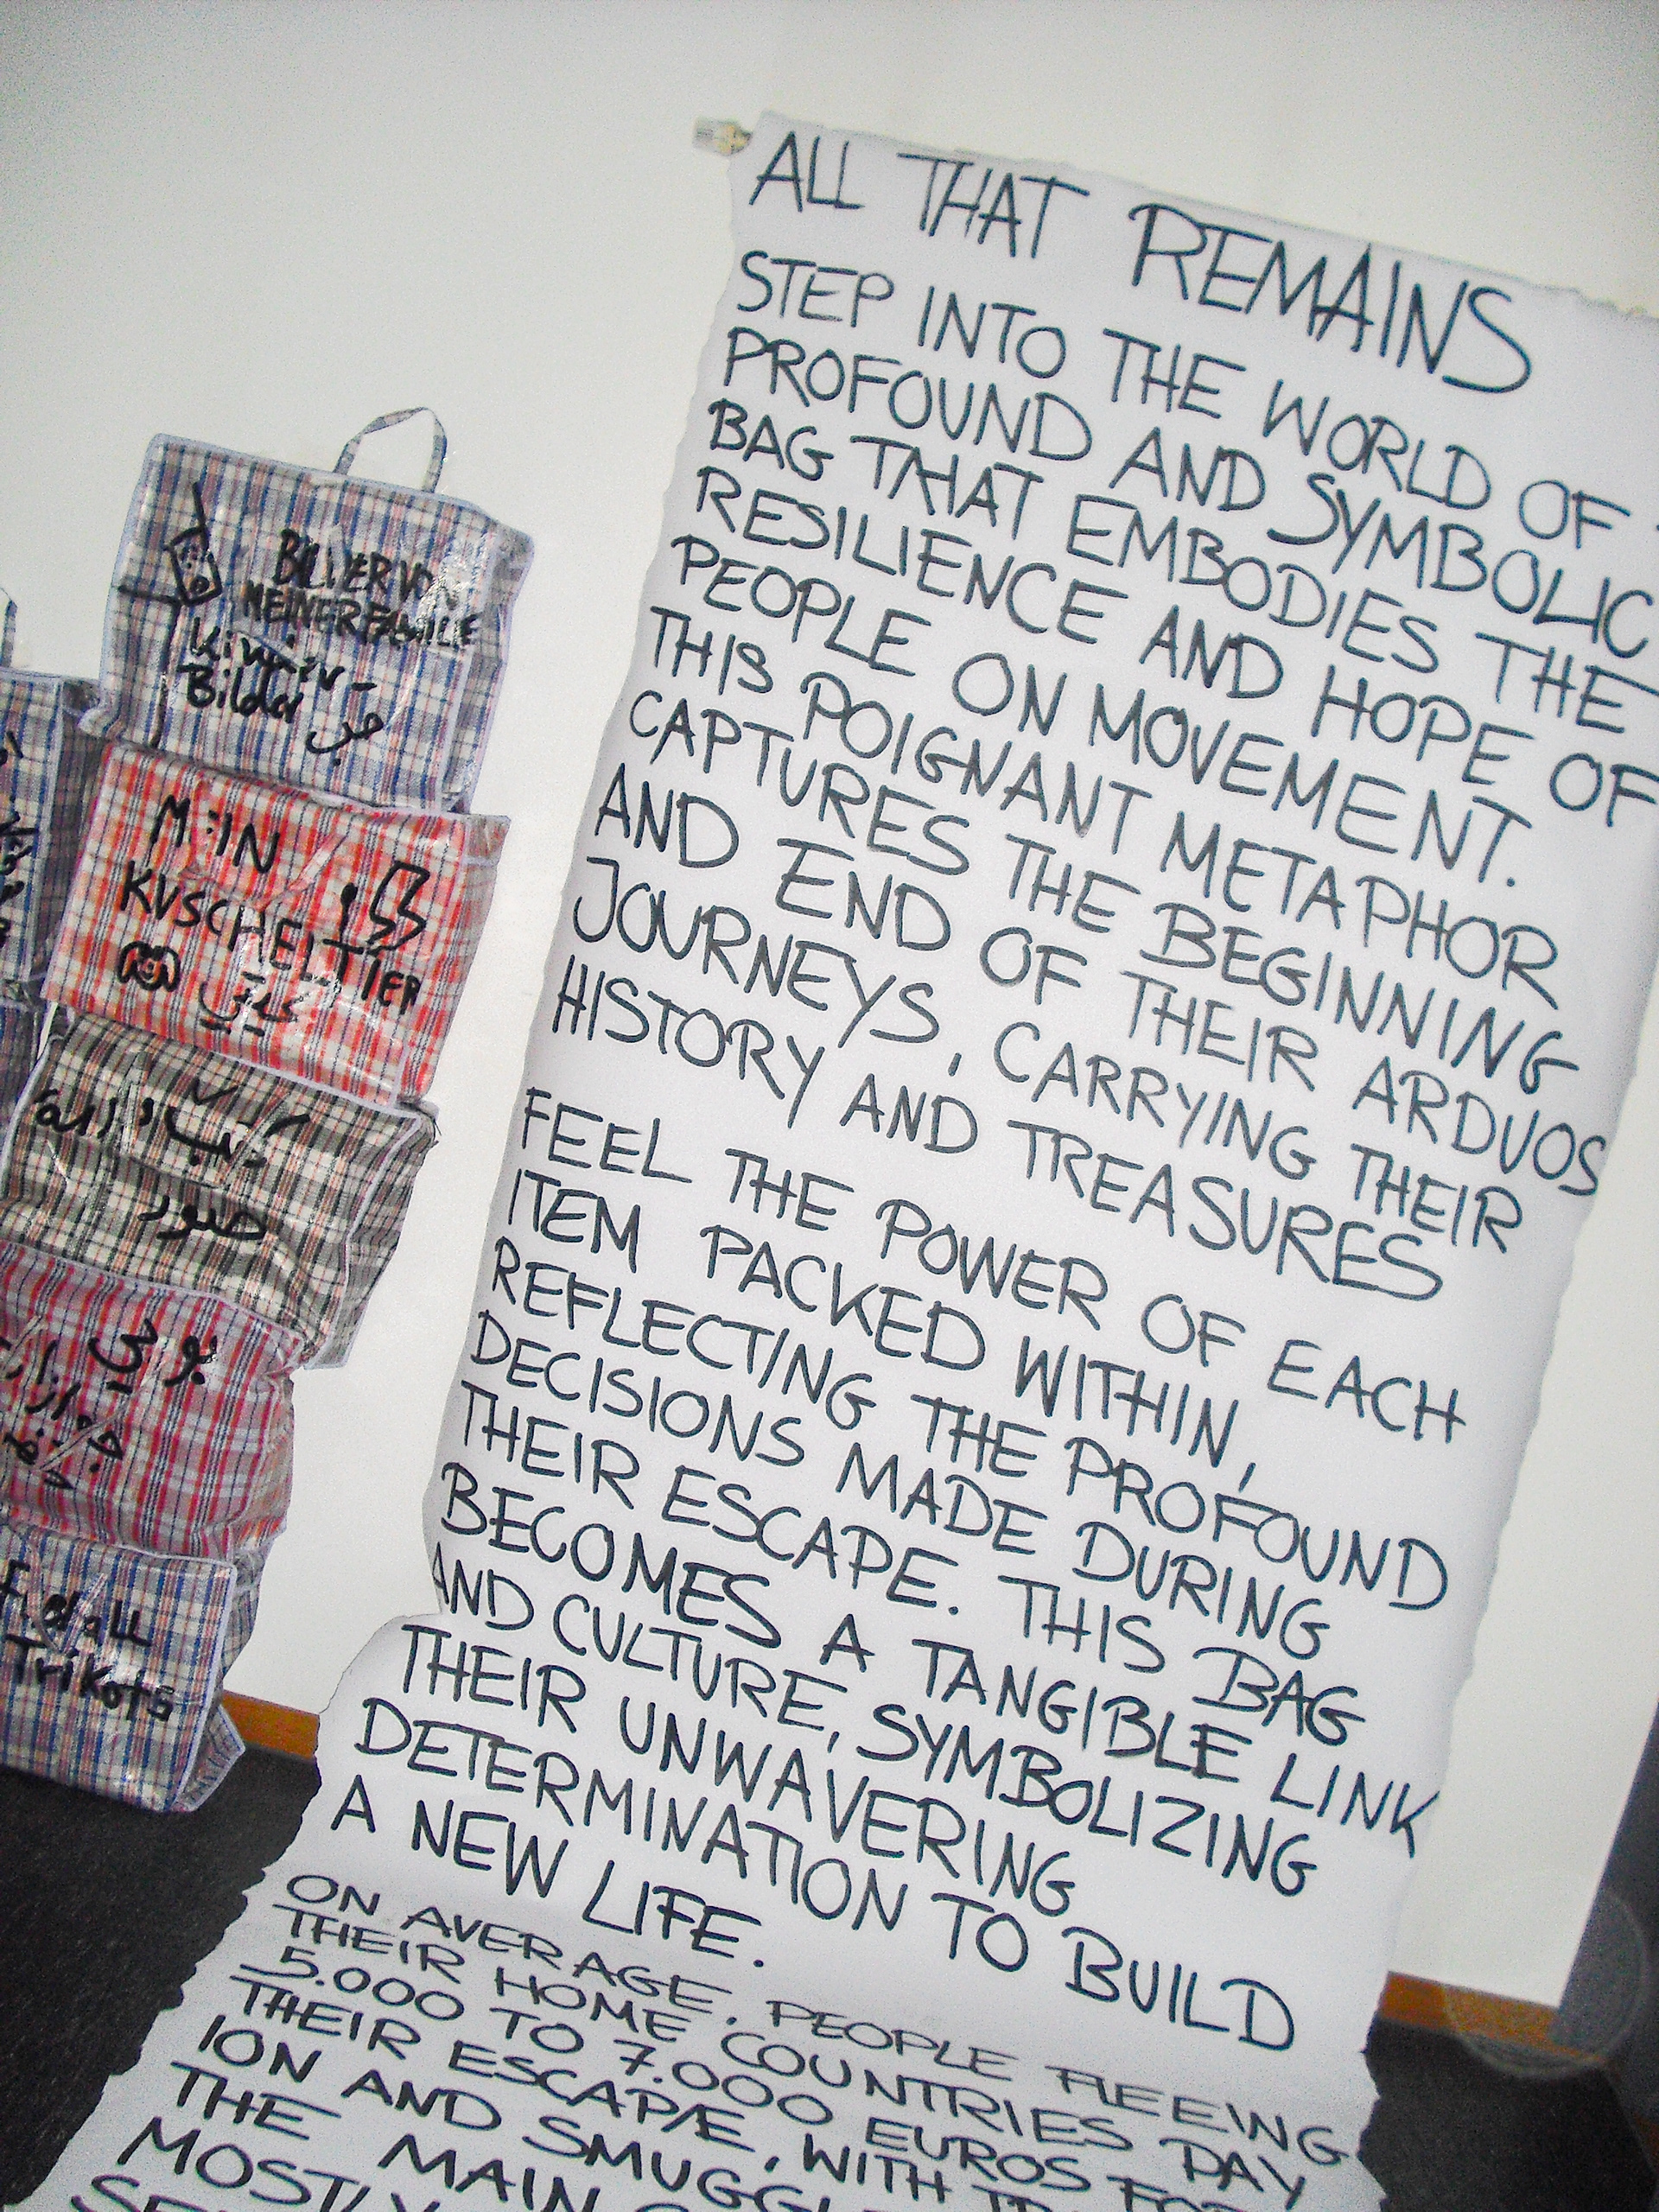 ALL THAT REMAINS
STEP INTO THE WORLD OF
PROFOUND AND SYMBOLIC
BAG THAT EMBODIES THE
RESILIENCE AND HOPE OF
PEOPLE ON MOVEMENT.
THIS POIGNANT METAPHOR
CAPTURES THE BEGINNING
AND END OF THEIR ARDUOS
JOURNEYS, CARRYING THEIR
HISTORY AND TREASURES
FEEL THE POWER OF EACH
ITEM PACKED WITHIN,
REFLECTING THE PROFOUND
DECISIONS MADE DURING
THEIR ESCAPE. THIS BAG
BECOMES A TANGIBLE LINK
AND CULTURE, SYMBOLIZING
THEIR UNWAVERING
DETERMINATION TO BUILD
A NEW LIFE.
ON AVERAGE, PEOPLE FLEEING
THEIR HOME COUNTRIES PAY
5.000 TO 7.000 EUROS FOR
THEIR ESCAPE, WITH
ION AND
THE MAIN
MOSTLY
MEINER
Kinder-
Bilder
MEIN
KUSCHELTIER
صور
Trikots